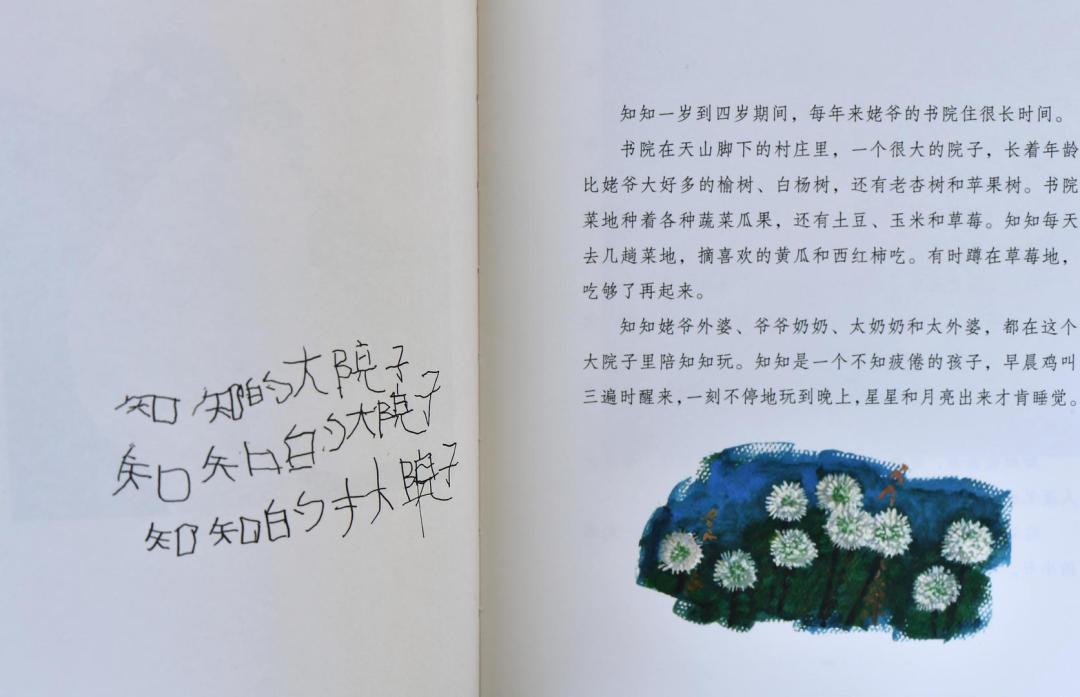 知知的大院子
知知的大院子
知知的大院子
知知一岁到四岁期间，每年来姥爷的书院住很长时间。
书院在天山脚下的村庄里，一个很大的院子，长着年龄
比姥爷大好多的榆树、白杨树，还有老杏树和苹果树。书院
菜地种着各种蔬菜瓜果，还有土豆、玉米和草莓。知知每天
去几趟菜地，摘喜欢的黄瓜和西红柿吃。有时蹲在草莓地，
吃够了再起来。
知知姥爷外婆、爷爷奶奶、太奶奶和太外婆，都在这个
大院子里陪知知玩。知知是一个不知疲倦的孩子，早晨鸡叫
三遍时醒来，一刻不停地玩到晚上，星星和月亮出来才肯睡觉。